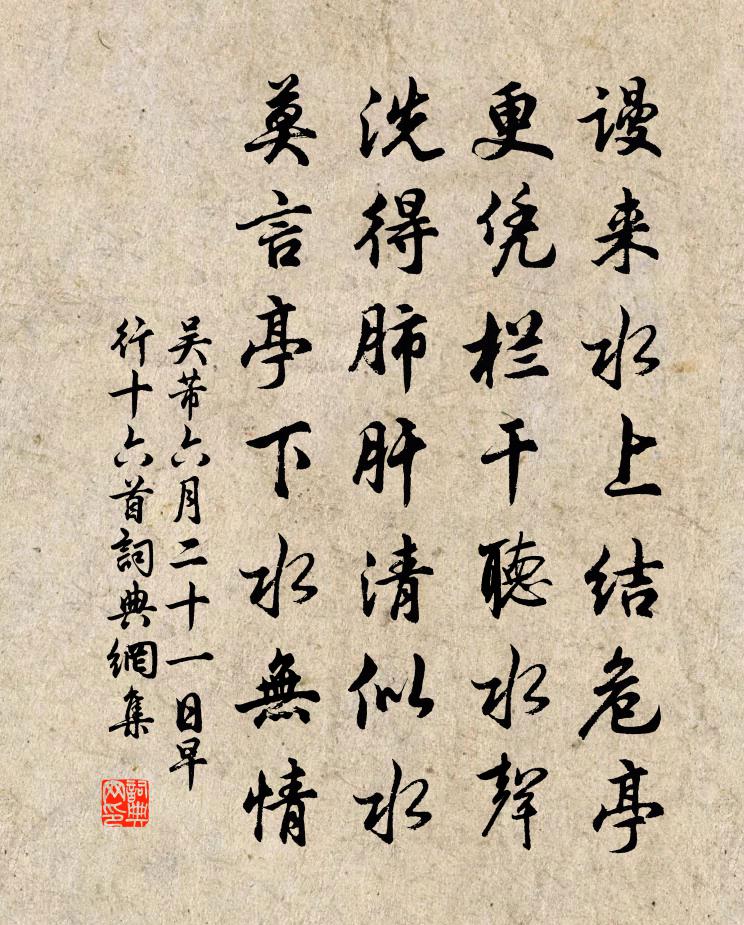 谩来水上结危亭
更凭栏干聽水聲
洗得肺肝清似水
莫言亭下水無情
吴芾六月二十一日早
行十六首詞典網集
詞典
网印